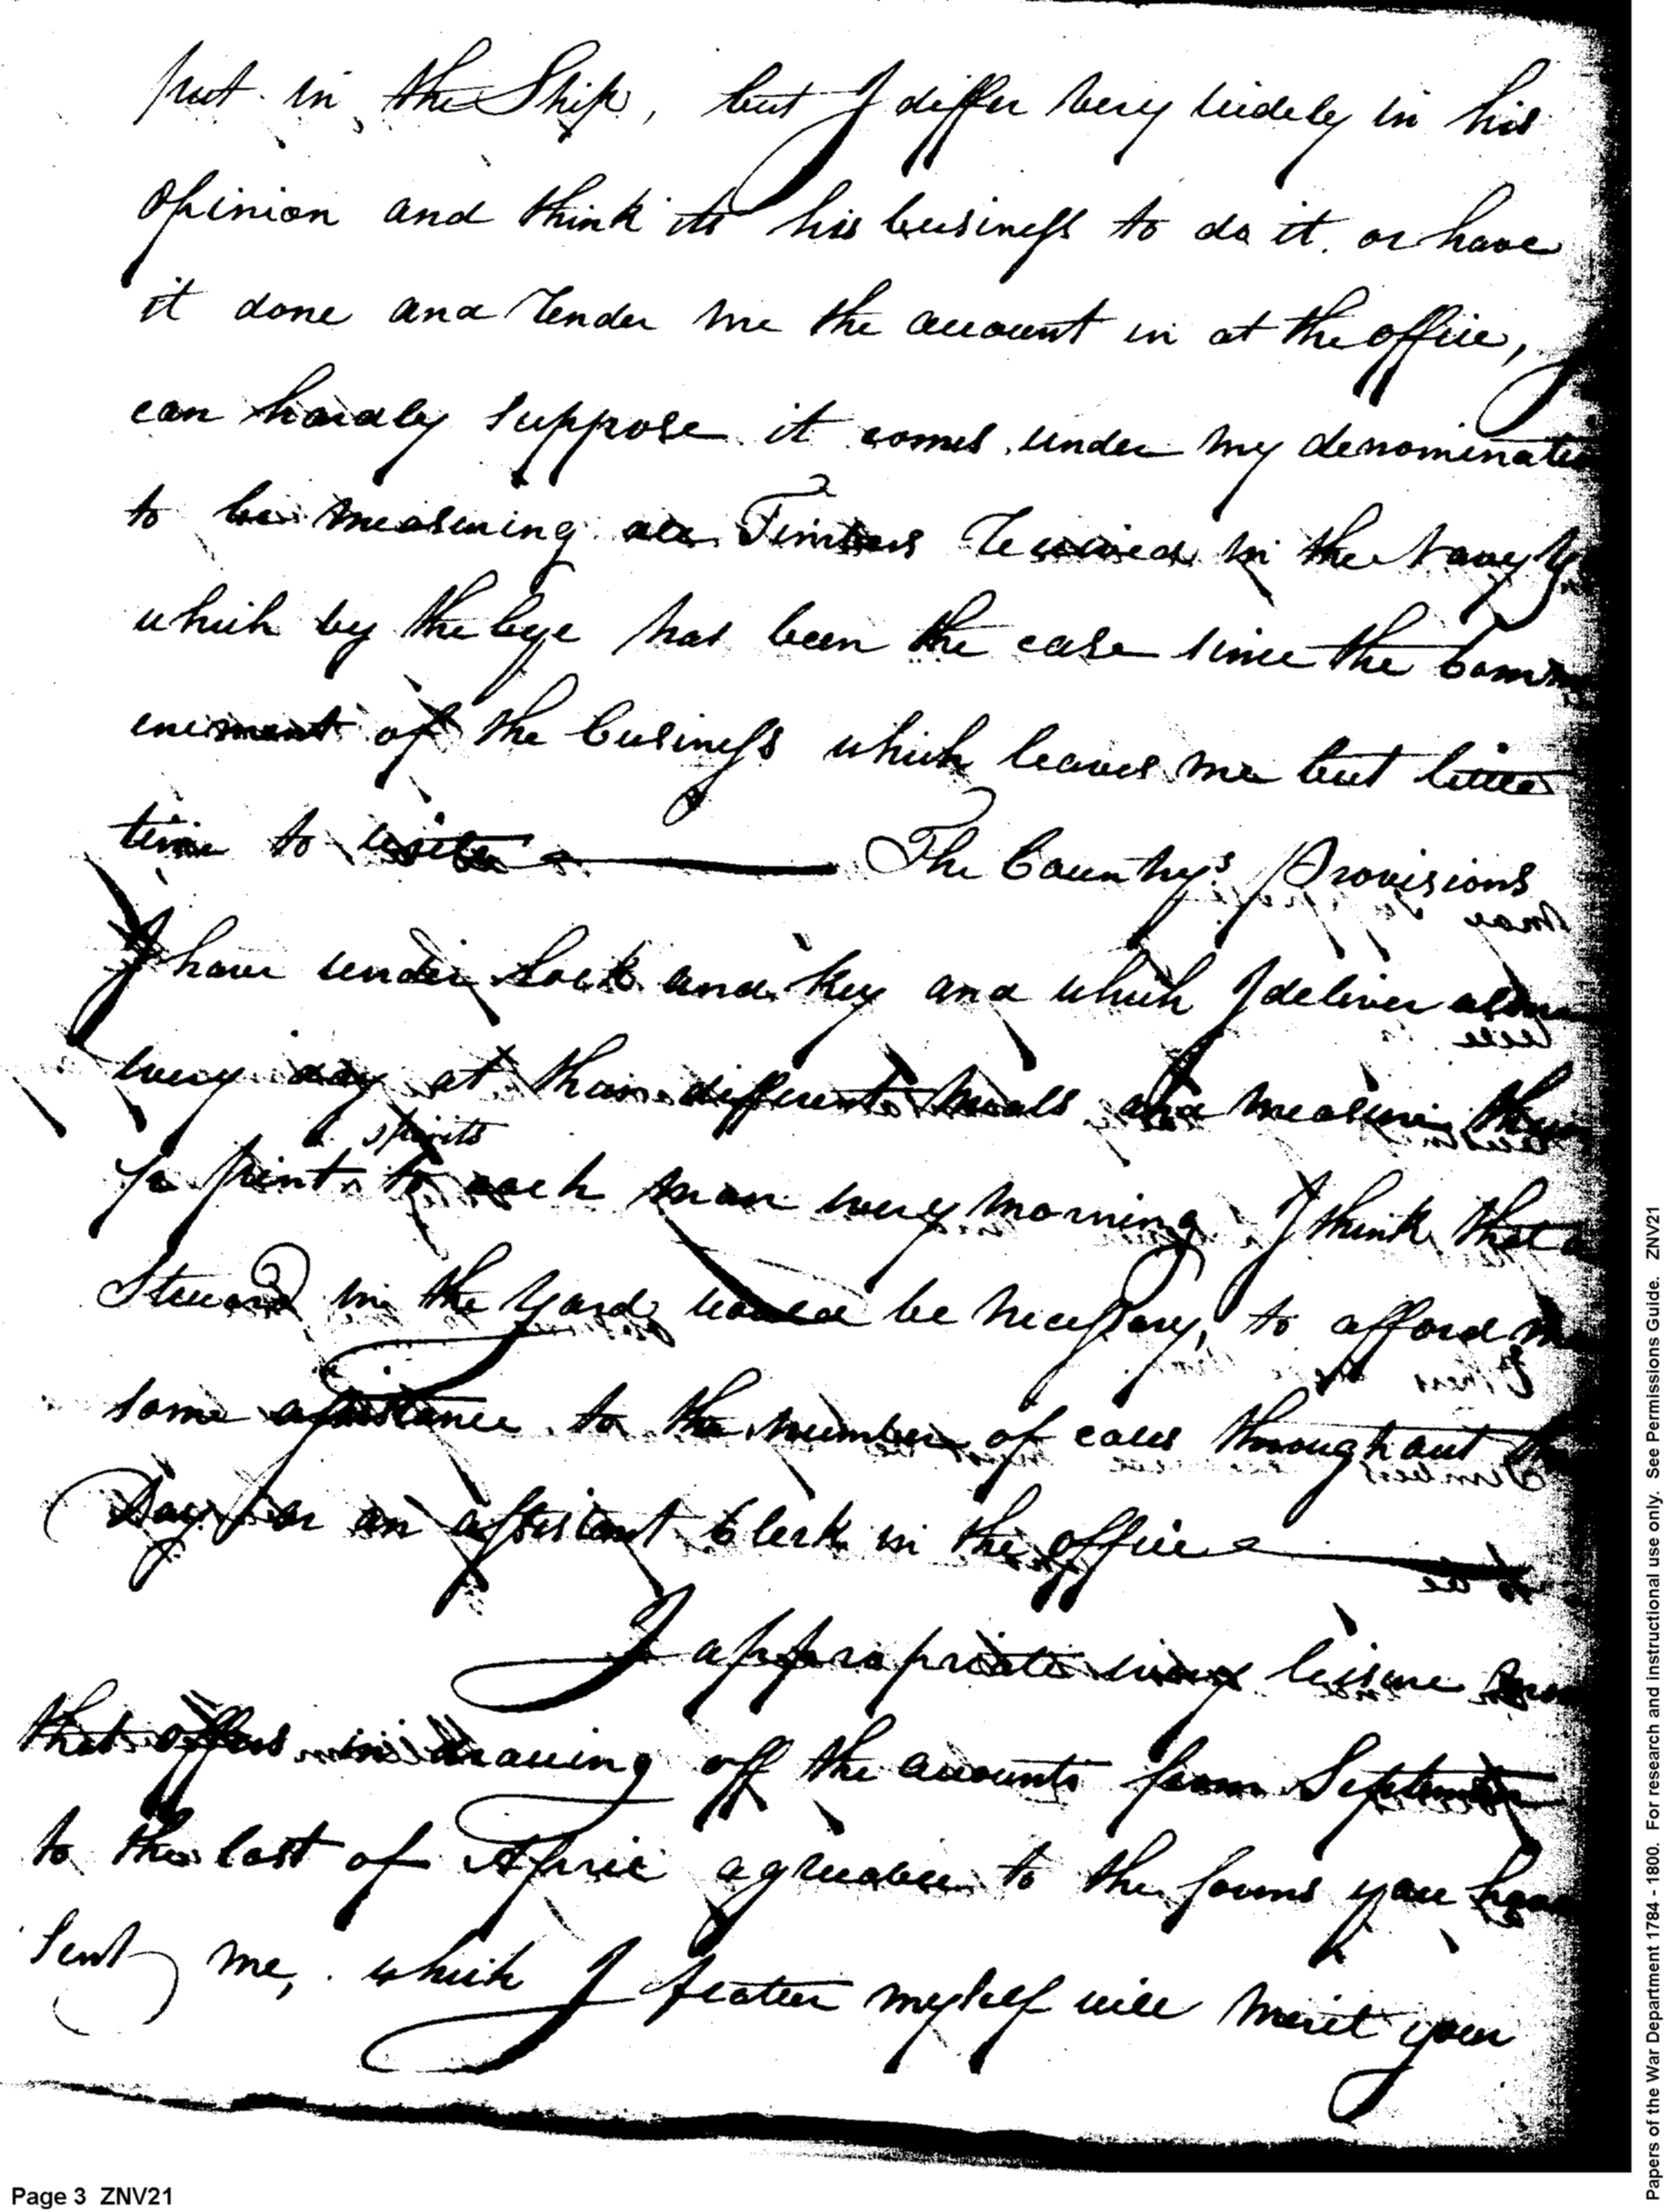 put in the Ship, but I differ very widely in his
opinion and think its his business to do it. or have
it done and render me the account in at the office, I
can hardly suppose it comes under my denominatio
to be measuring all Timbers received in the Navy Y
which by the bye has been the case since the Comm
encement of the business which leaves me but little
time to write The Country's Provisions
I have under Lock and Key and which I deliver alone
every day at thair different meals and measure them
½ pint spirits to each man every morning I think that a
Steward in the Yard would be necessary, to afford me
some assistance to the number of calls throughout the
Day for an assistant Clerk in the office
I appropriate every leisure
that offers in drawing off the accounts from September
to the last of April agreable to the forms you have
sent me, which I flatter myself will merit your
Page 3 ZNV21
Papers of the War Department 1784 - 1800. For research and instructional use only. See Permissions Guide. ZNV21